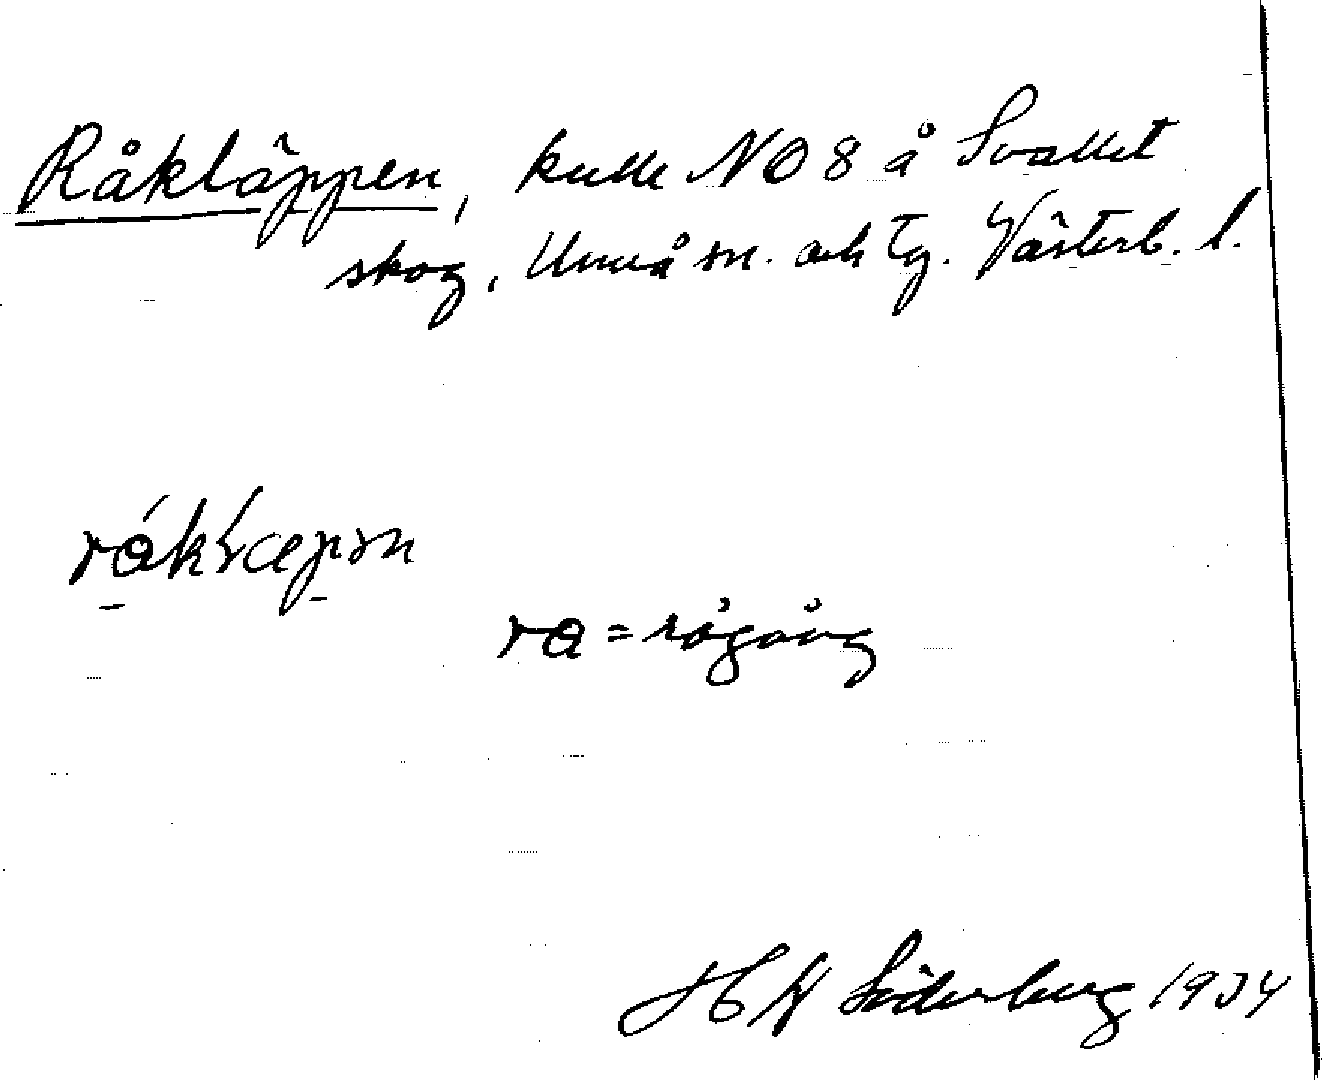 Råkläppen, kulle NO 8 å Svallet
skog, Umeå sn. och tg. Västerb. l.
ra = rågång
H W Söderberg 1934